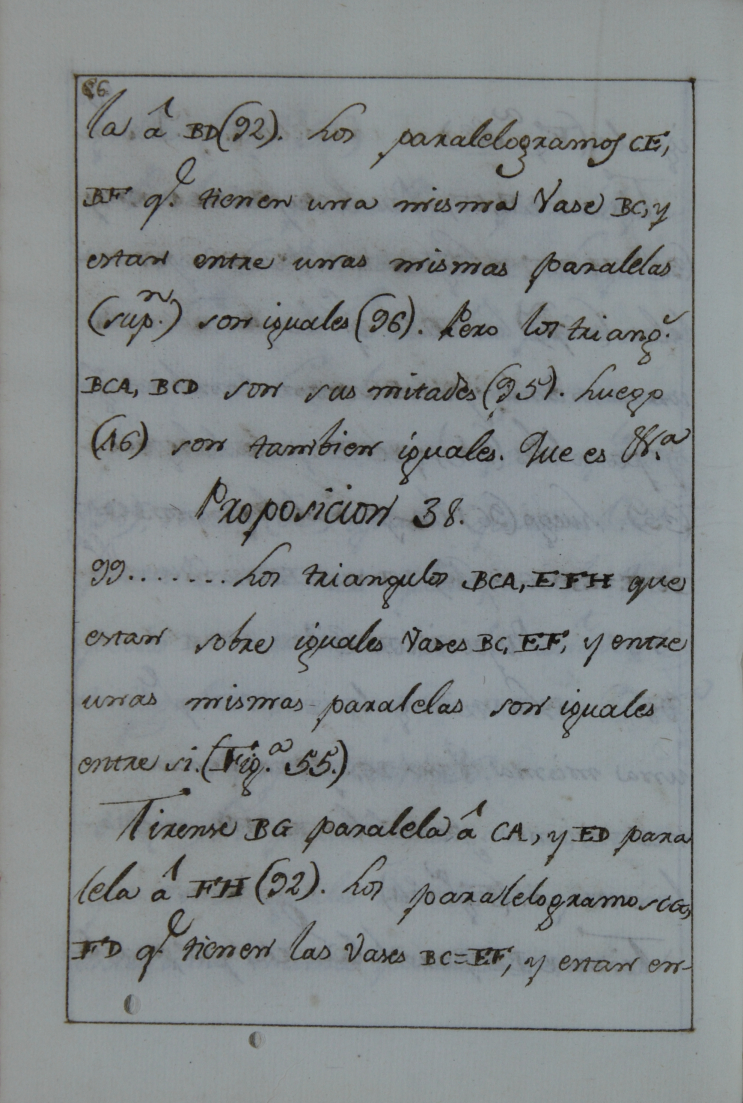 86
la â BD (92). Los paralelogramos CE,
BF q.e tienen una misma Vase BC, y
estan entre unas mismas paralelas
(sup.n) son iguales (96). Pero los triang.s
BCA, BCD son sus mitades (95). Luego
(16) son tambien iguales. Que es &.a
Proposicion 38.
99........ Los triangulos BCA, EFH que
estan sobre iguales Vases BC, EF, y entre
unas mismas paralelas son iguales
entre si. (Fig.a 55.)
Tirense BG paralela â CA, y ED para
lela â FH (92). Los paralelogramos CG,
FD q.e tienen las Vases BC=EF, y estan en-